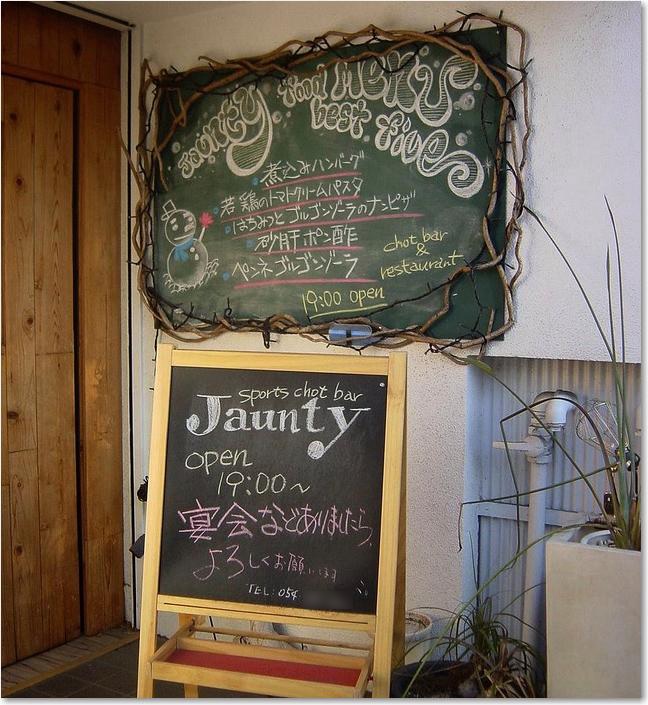 Jaunty food MENU
best five
煮込みハンバーグ
若鶏のトマトクリームパスタ
はちみつとゴルゴンゾーラのナンピザ
砂肝ポン酢
ペンネゴルゴンゾーラ
chot bar
&
restaurant
19:00 open
sports chot bar
Jaunty
open
19:00〜
宴会などありましたら、
よろしくお願いします
TEL:054